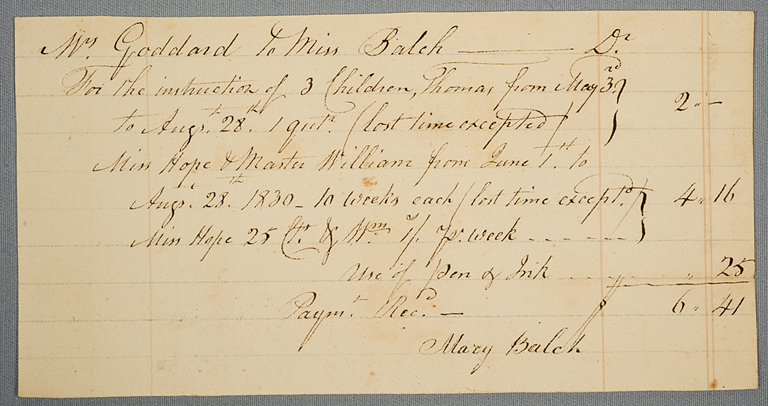 Mrs Goddard to Miss Balch — Dr
For the instruction of 3 Children, Thomas from May 3rd
to Augst. 28th. 1 qutr. (lost time excepted) 2 " —
Miss Hope & Master William from June 1st. to
Augst. 28th. 1830 – 10 weeks each (lost time except.d) 4 " 16
Miss Hope 25 Cts. & Wm. 1/. pr. week - - - -
Use of Pen & Ink - - - " 25
Paymt. Recd. — 6 " 41
Mary Balch